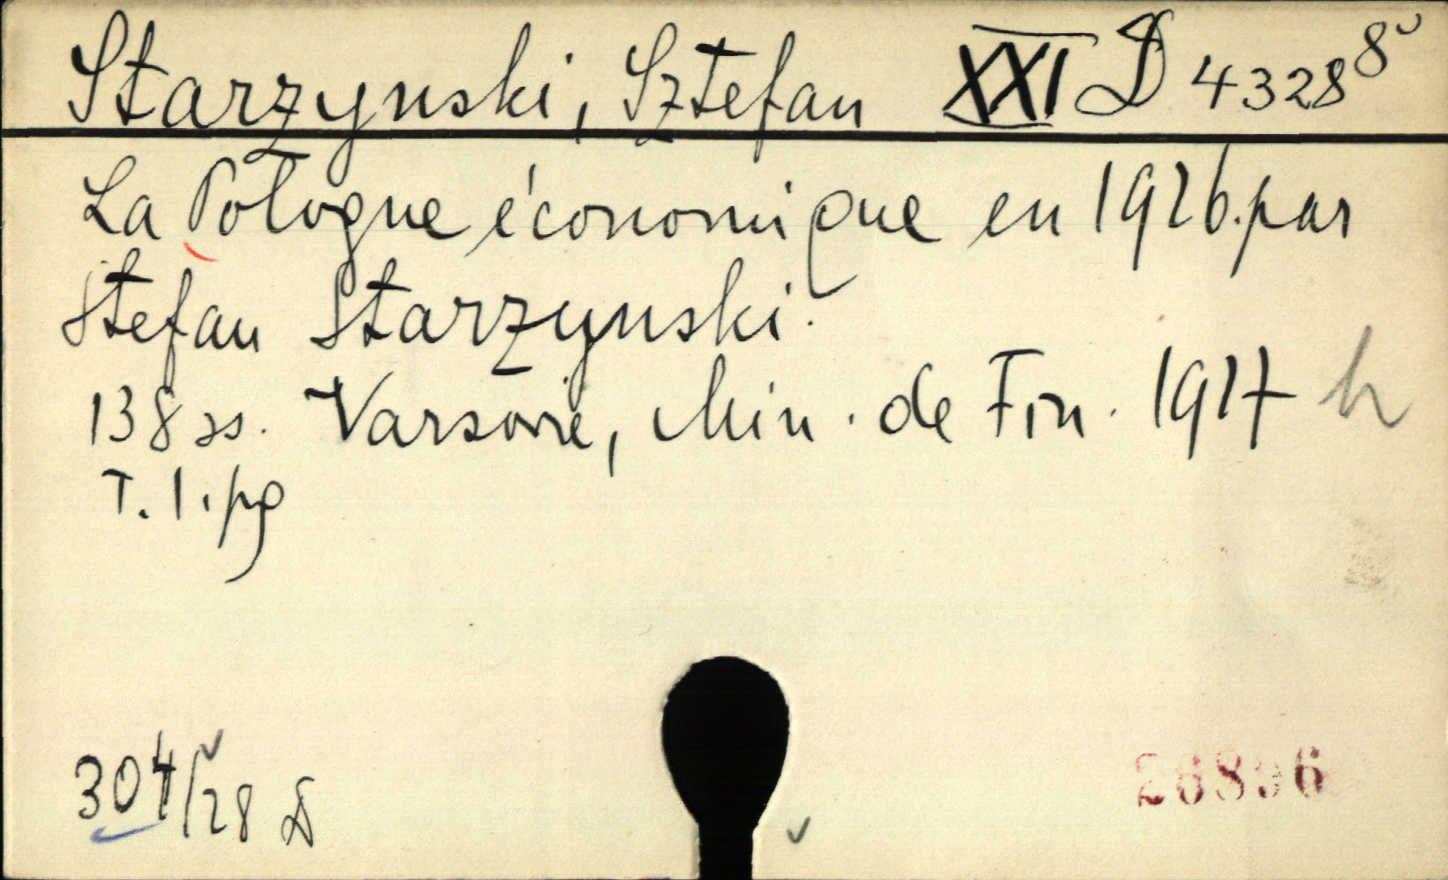 Starzynski, Sztefan XXI D 4328⁸
La Pologne économique en 1926. par
Stefan Starzynski.
138 ss. Varsovie, Min. de Fin. 1927 h
T. 1. pg
304/28 D